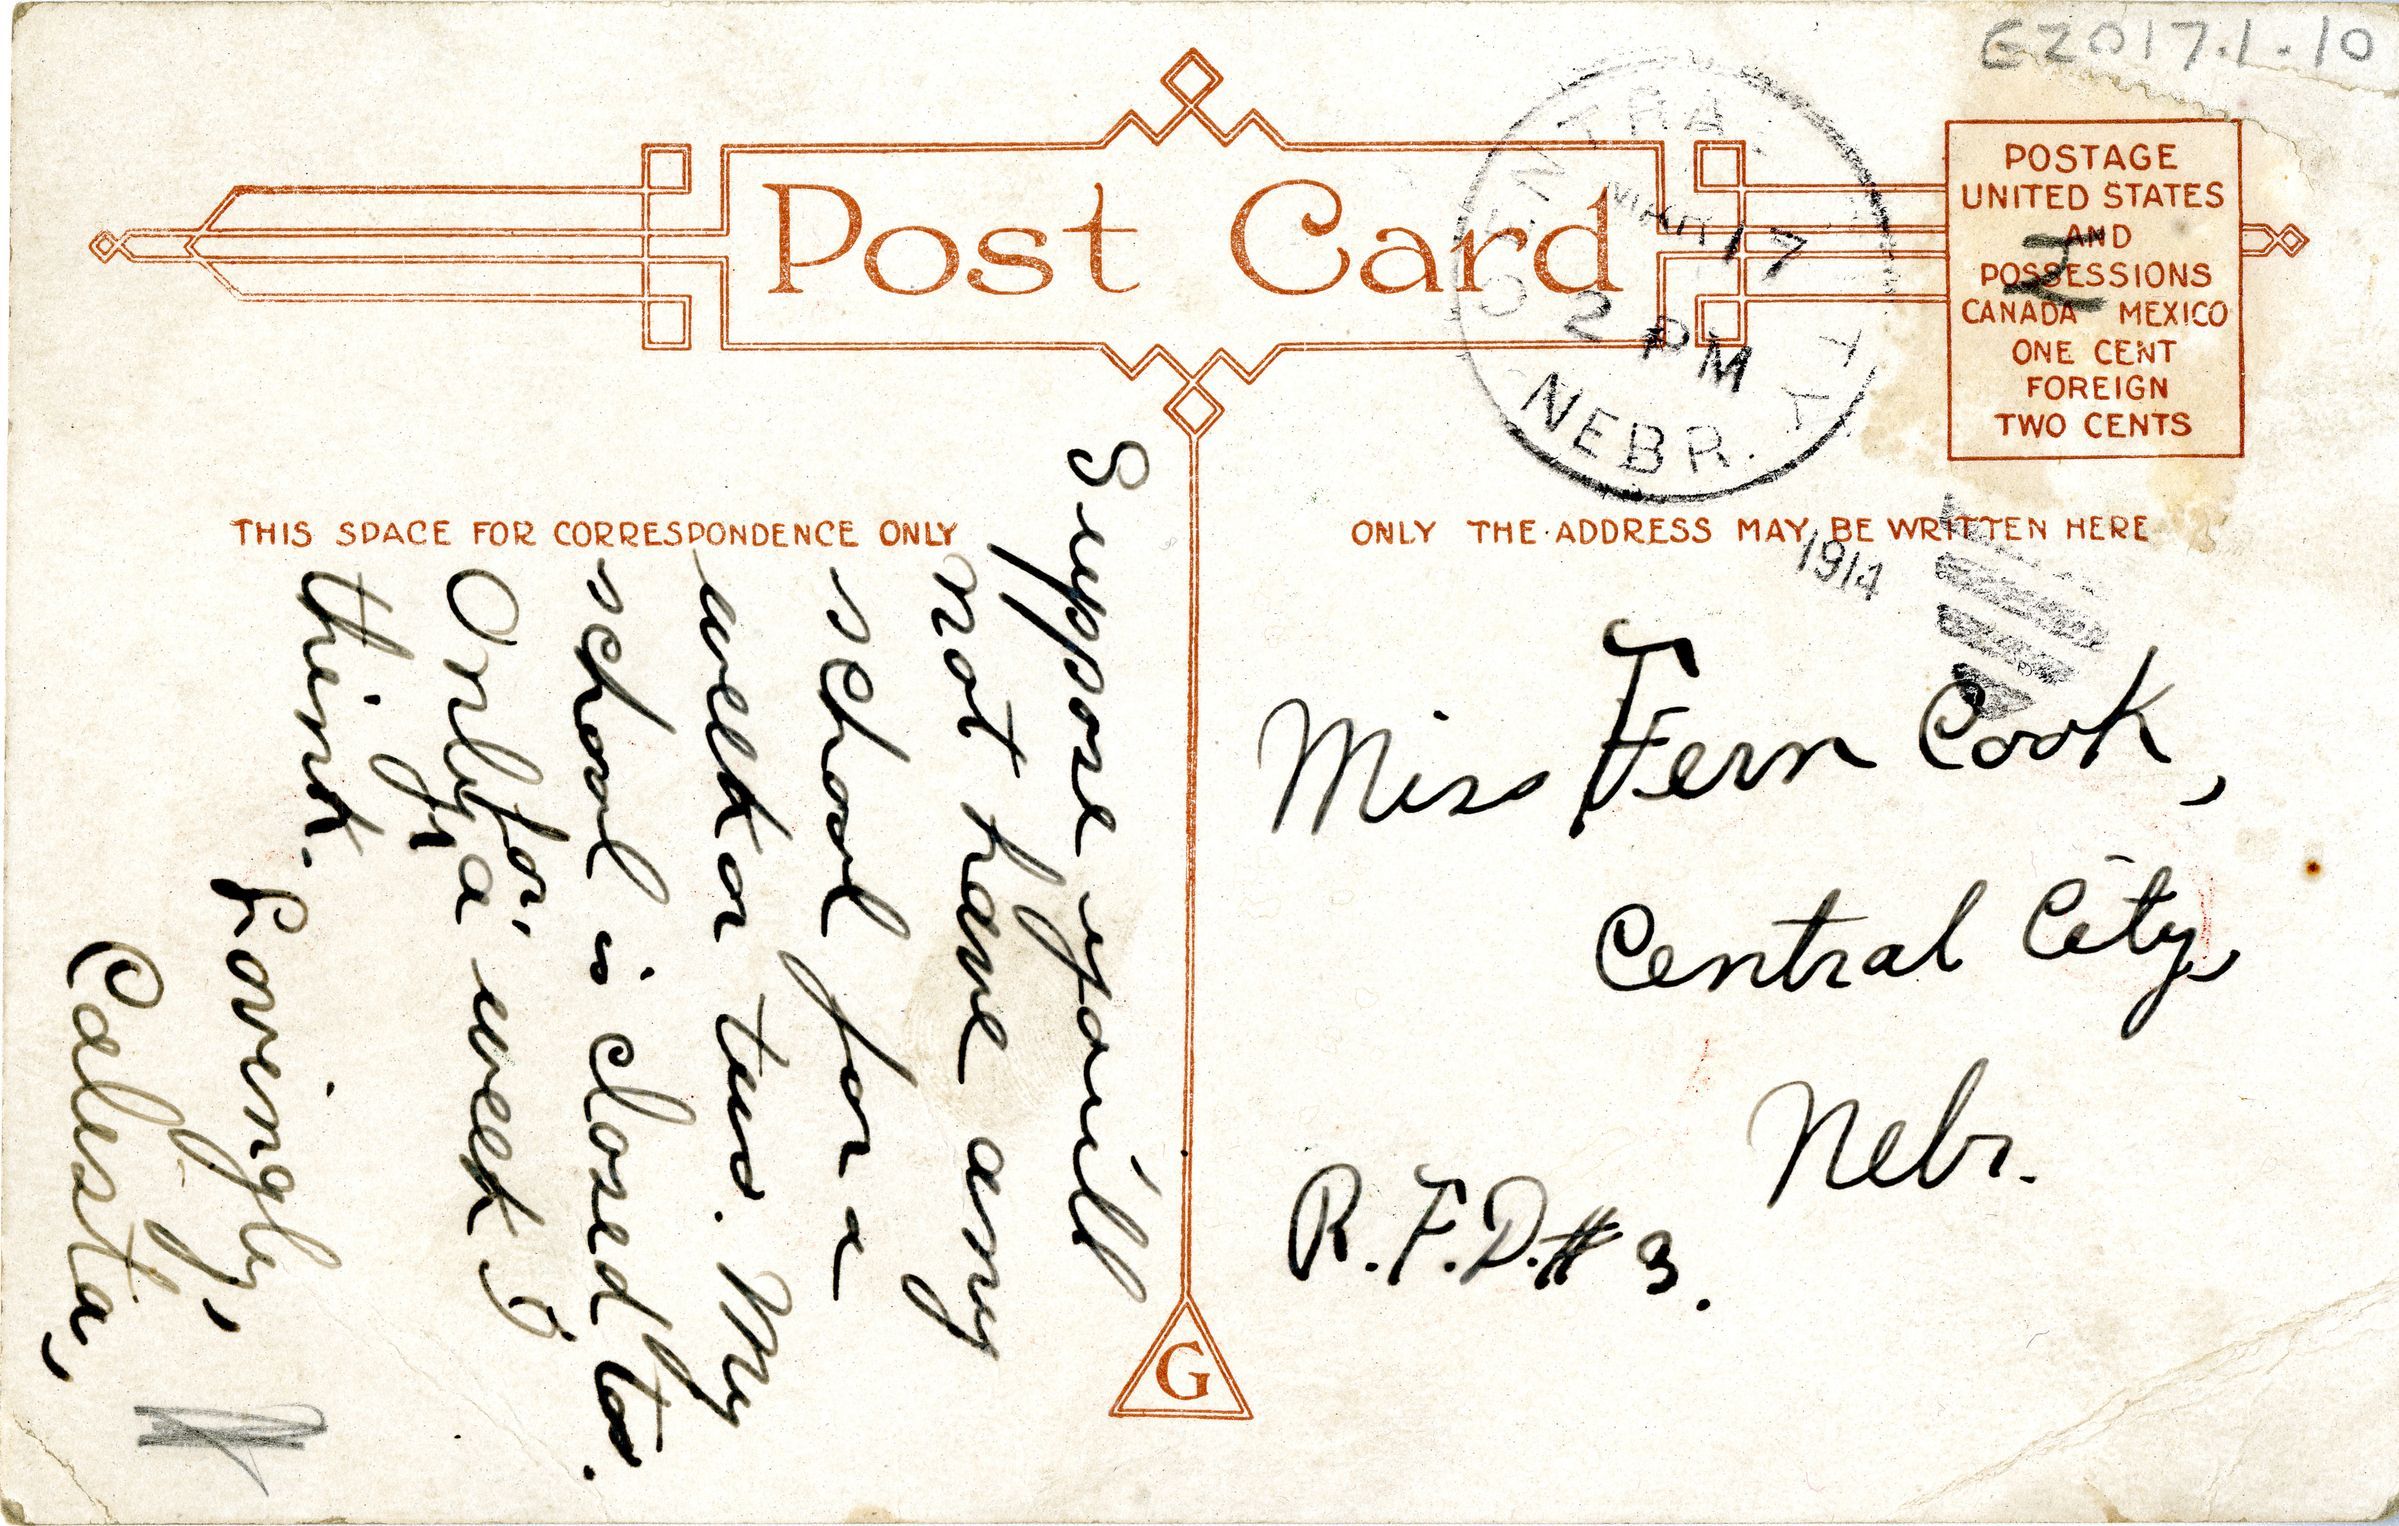 E2017.1.10
Post Card
CENTRAL CITY
MAR 17
2 PM
NEBR.
1914
POSTAGE
UNITED STATES
AND
POSSESSIONS
CANADA MEXICO
ONE CENT
FOREIGN
TWO CENTS
2
THIS SPACE FOR CORRESPONDENCE ONLY
Suppose you'll
not have any
school for a
week or two. My
school is closed to.
Only for a week I
think.
Lovingly,
Calesta,
ONLY THE ADDRESS MAY BE WRITTEN HERE
Miss Fern Cook,
Central City,
Nebr.
R.F.D.# 3.
G